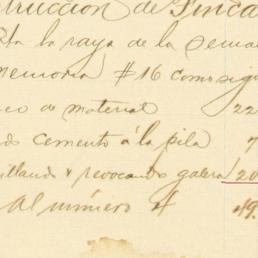 trucción de Finca
sta la raya de la sema
memoria #16 como sig
co de material 22
do cemento á la pila 7
illando y revocando galera 20
Al número # 49.